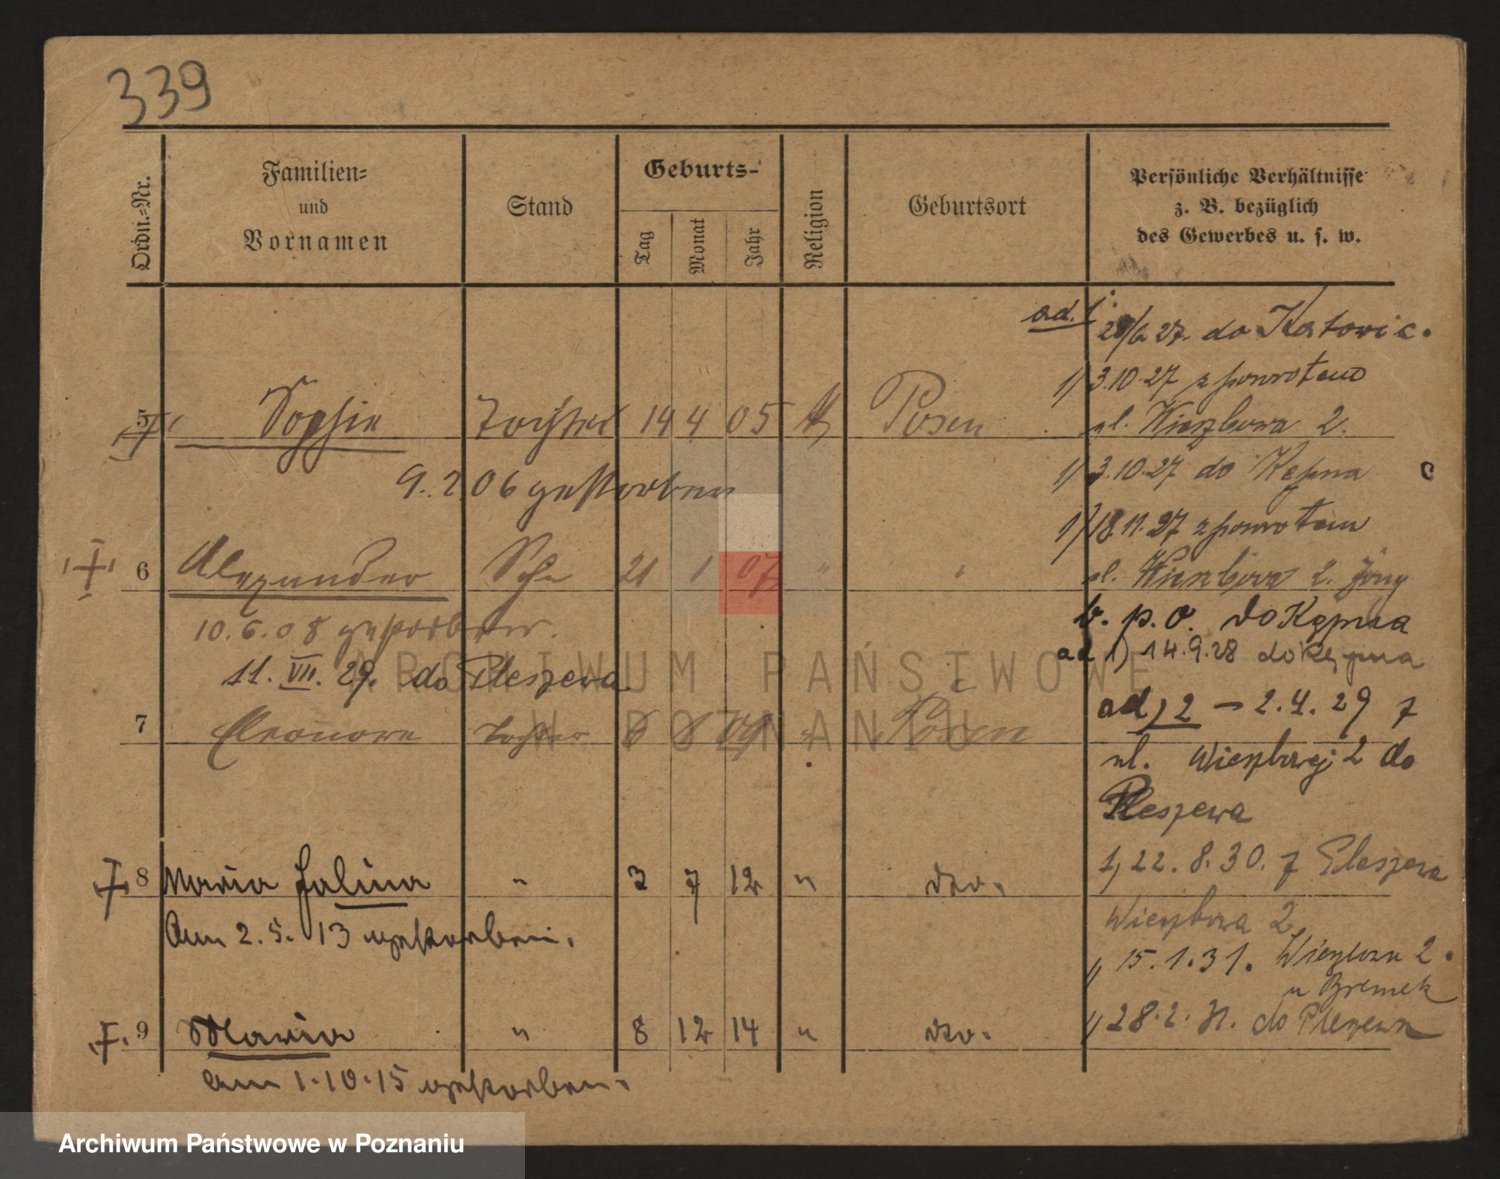 339
Ordn.-Nr.
Familien-
und
Vornamen
Stand
Geburts-
Tag
Monat
Jahr
Religion
Geburtsort
Persönliche Verhältnisse
z. B. bezüglich
des Gewerbes u. s. w.
ad. 1. 28/6 27. do Katowic.
1/ 3.10.27 z powrotem
5 Sophie Tochter 14 4 05 k Posen
ul. Wierzbowa 2.
9. 2 06 gestorben
1/ 3.10.27 do Kępna
1/ 18.11.27 z powrotem
6 Alexander Sohn 21 1 07 "
ul. Wierzbowa 2.
10. 6. 08 gestorben.
b. p. o. do Kępna
ad 1) 14.9.28 do Kępna
11. VII. 29. do Pleszewa
ad) 2 – 2.4.29 z
7 Eleonore Tochter 8 8 09 " Posen
ul. Wierzbowej 2 do
Pleszewa
8 Maria Halina " 3 7 12 " dto.
1) 22.8.30. z Pleszewa
Wierzbowa 2
Am 2. 5. 13 gestorben.
1/ 15.1.31. Wierzbowa 2.
u
9 Maria " 8 12 14 " dto.
1/ 28.2.31. do Pleszewa
am 1.10.15 gestorben.
ARCHIWUM PAŃSTWOWE
W POZNANIU
Archiwum Państwowe w Poznaniu